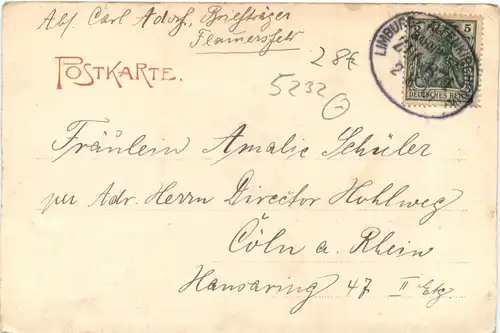 Abs. Carl Adorf, Briefträger
Flamersfeld
28€
5232
POSTKARTE.
5
LIMBURG
DEUTSCHES REICH
Fräulein Amalie Schüler
per Adr. Herrn Director Hohlweg
Cöln a. Rhein
Hansaring 47 II Etg.